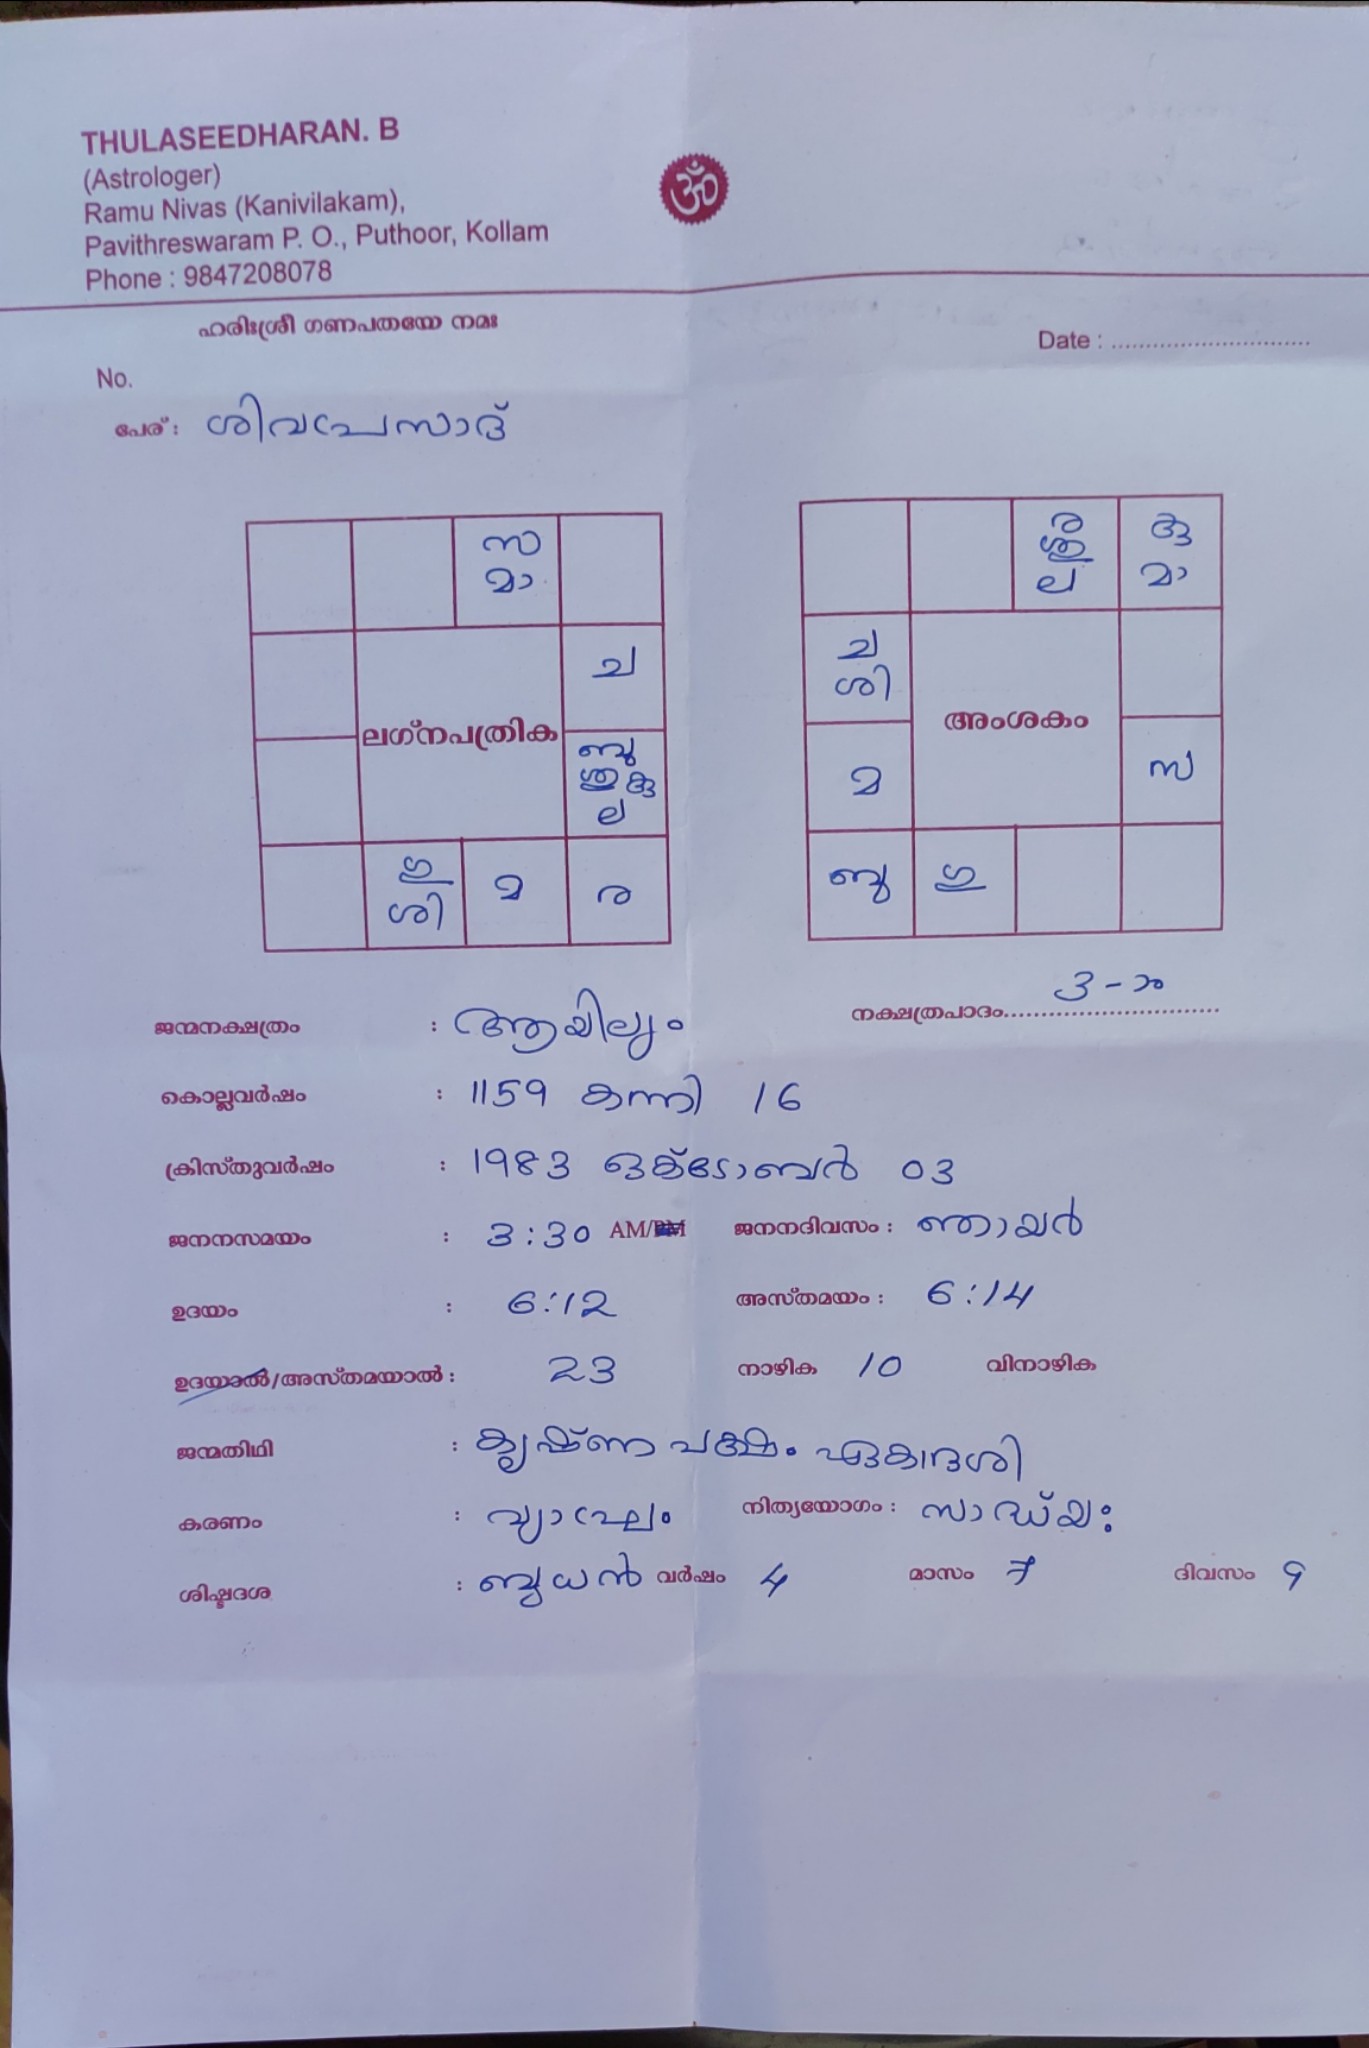 THULASEEDHARAN. B
(Astrologer)
Ramu Nivas (Kanivilakam),
Pavithreswaram P. O., Puthoor, Kollam
Phone : 9847208078
ॐ
ഹരിഃശ്രീ ഗണപതയേ നമഃ
Date : ............................
No.
പേര് : ശിവപ്രസാദ്
സ
മാ
ച
ലഗ്നപത്രിക
ബു
ശു കു
ല
ഗു
ശി
മ
ര
ര
ശു
ല
കു
മാ
ച
ശി
അംശകം
മ
സ
ബു
ഗു
ജന്മനക്ഷത്രം : ആയില്യം
നക്ഷത്രപാദം 3-ാം
കൊല്ലവർഷം : 1159 കന്നി 16
ക്രിസ്തുവർഷം : 1983 ഒക്ടോബർ 03
ജനനസമയം : 3:30 AM/PM ജനനദിവസം : ഞായർ
ഉദയം : 6:12 അസ്തമയം : 6:14
ഉദയാൽ/അസ്തമയാൽ : 23 നാഴിക 10 വിനാഴിക
ജന്മതിഥി : കൃഷ്ണ പക്ഷം ഏകാദശി
കരണം : വ്യാഘ്രം നിത്യയോഗം : സാദ്ധ്യഃ
ശിഷ്ടദശ : ബുധൻ വർഷം 4 മാസം 7 ദിവസം 9